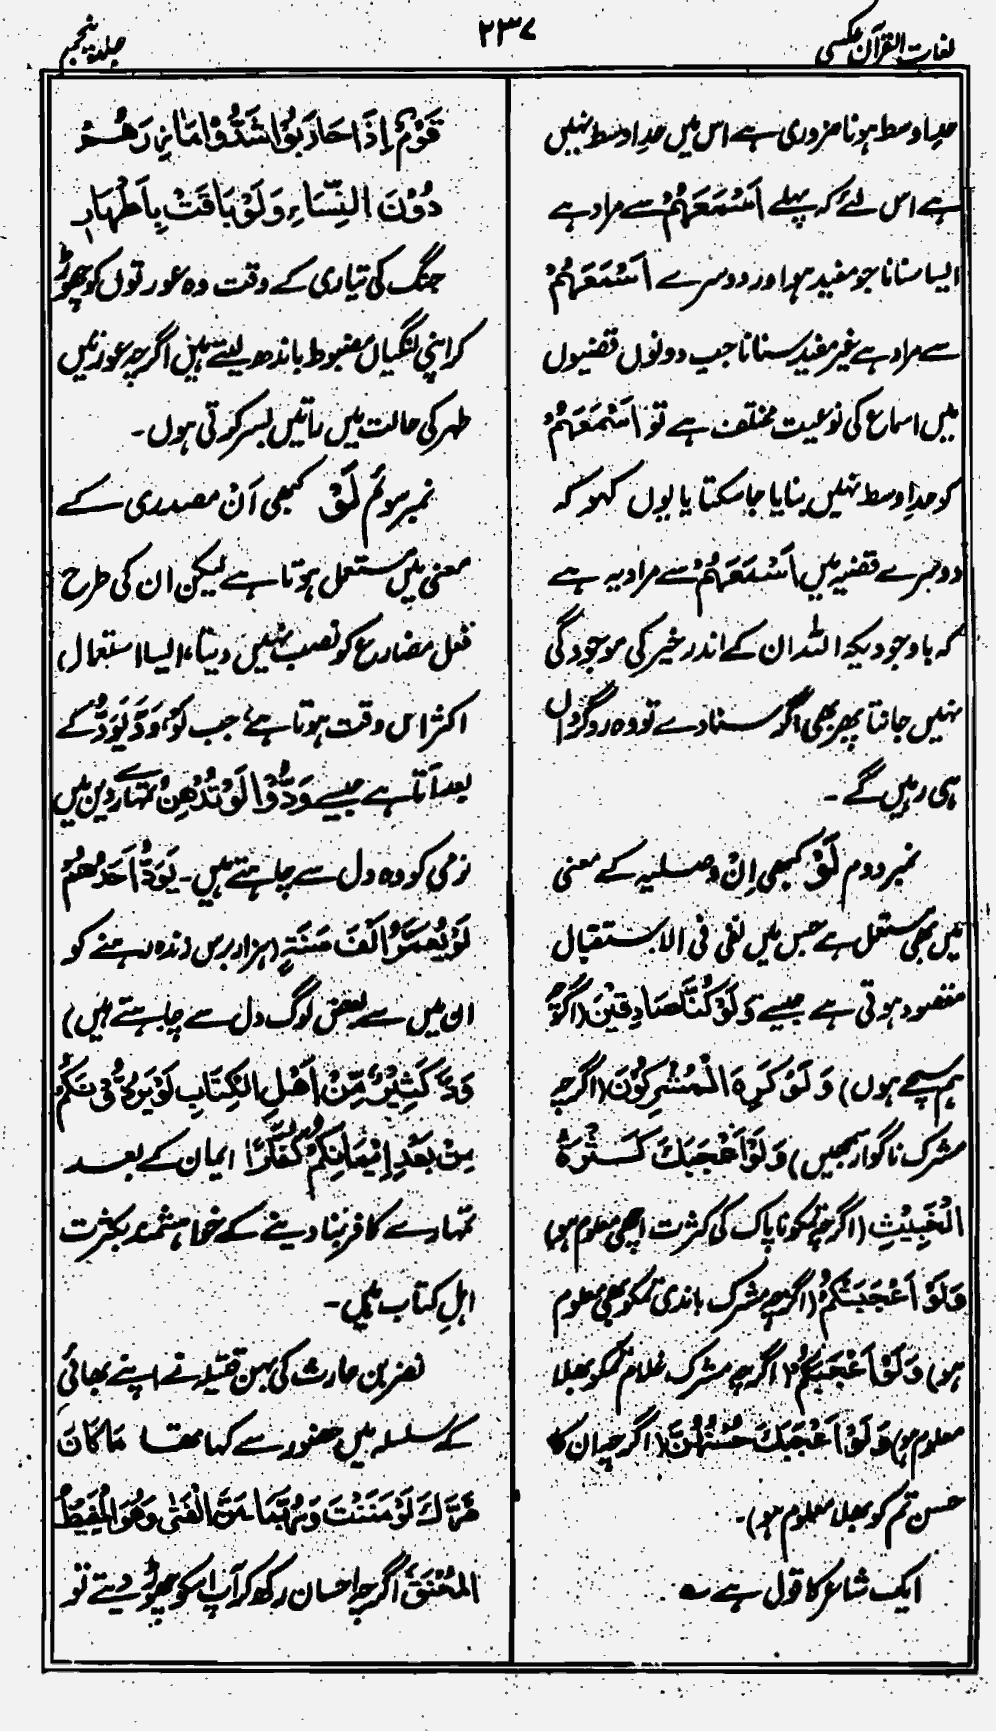 لغات القرآن عکسی
۲۳۷
جلد پنجم
حدِاوسط ہونا ضروری ہے اس میں حدِاوسط نہیں
ہے اس لئے کہ پہلے اَسْمَعَهُمْ سے مراد ہے
ایسا سنانا جو مفید ہو اور دوسرے اَسْمَعَهُمْ
سے مراد ہے غیر مفید سنانا جب دونوں قضیوں
میں اسماع کی نوعیت مختلف ہے تو اَسْمَعَهُمْ
کو حدِاوسط نہیں بنایا جاسکتا یا یوں کہو کہ
دوسرے قضیہ میں اَسْمَعَهُمْ سے مراد یہ ہے
کہ باوجودیکہ اللہ ان کے اندر خیر کی موجودگی
نہیں جانتا پھر بھی اگر سنادے تو وہ روگرداں
ہی رہیں گے۔
نمبر دوم لَوْ کبھی اِنْ وصلیہ کے معنی
میں بھی مستعمل ہے جس میں نفی فی الاستقبال
مقصود ہوتی ہے جیسے وَلَوْ كُنَّا صَادِقِيْنَ (اگرچہ
ہم سچے ہوں) وَلَوْ كَرِهَ الْمُشْرِكُوْنَ (اگرچہ
مشرک ناگوار سمجھیں) وَلَوْ اَعْجَبَكَ كَثْرَةُ
الْخَبِيْثِ (اگرچہ تمکو ناپاک کی کثرت اچھی معلوم ہو)
وَلَوْ اَعْجَبَتْكُمْ (اگرچہ مشرک باندی تمکو بھلی معلوم
ہو) وَلَوْ اَعْجَبَكُمْ (اگرچہ مشرک غلام تمکو بھلا
معلوم ہو) وَلَوْ اَعْجَبَكَ حُسْنُهُنَّ (اگرچہ ان کا
حسن تم کو بھلا معلوم ہو)۔
ایک شاعر کا قول ہے ؎
قَوْمٌ اِذَا حَارَبُوْا شَدُّوْا مَآزِرَهُمْ
دُوْنَ النِّسَاءِ وَلَوْ بَاتَتْ بِاَطْهَارٍ
جنگ کی تیاری کے وقت وہ عورتوں کو چھوڑ
کر اپنی لنگیاں مضبوط باندھ لیتے ہیں اگرچہ عورتیں
طہر کی حالت میں راتیں بسر کرتی ہوں۔
نمبر سوئم لَوْ کبھی اَنْ مصدری کے
معنی میں مستعمل ہوتا ہے لیکن ان کی طرح
فعل مضارع کو نصب نہیں دیتا، ایسا استعمال
اکثر اس وقت ہوتا ہے جب لَوْ، وَدَّ يَوَدُّ کے
بعد آتا ہے جیسے وَدُّوْا لَوْ تُدْهِنُ تمہارے دین میں
نرمی کو وہ دل سے چاہتے ہیں۔ يَوَدُّ اَحَدُهُمْ
لَوْ يُعَمَّرُ اَلْفَ سَنَةٍ (ہزار برس زندہ رہنے کو
ان میں سے بعض لوگ دل سے چاہتے ہیں)
وَدَّ كَثِيْرٌ مِّنْ اَهْلِ الْكِتَابِ لَوْ يَرُدُّوْنَكُمْ
مِنْ بَعْدِ اِيْمَانِكُمْ كُفَّارًا ایمان کے بعد
تمہارے کافر بنا دینے کے خواہشمند بکثرت
اہلِ کتاب ہیں۔
نضر بن حارث کی بہن قتیلہ نے اپنے بھائی
کے سلسلہ میں حضور سے کہا تھا مَا كَانَ
ضَرَّكَ لَوْ مَنَنْتَ وَرُبَّمَا مَنَّ الْفَتٰى وَهُوَ الْمَغِيْظُ
الْمُحْنَقُ، اگرچہ احسان رکھ کر آپ اسکو چھوڑ دیتے تو